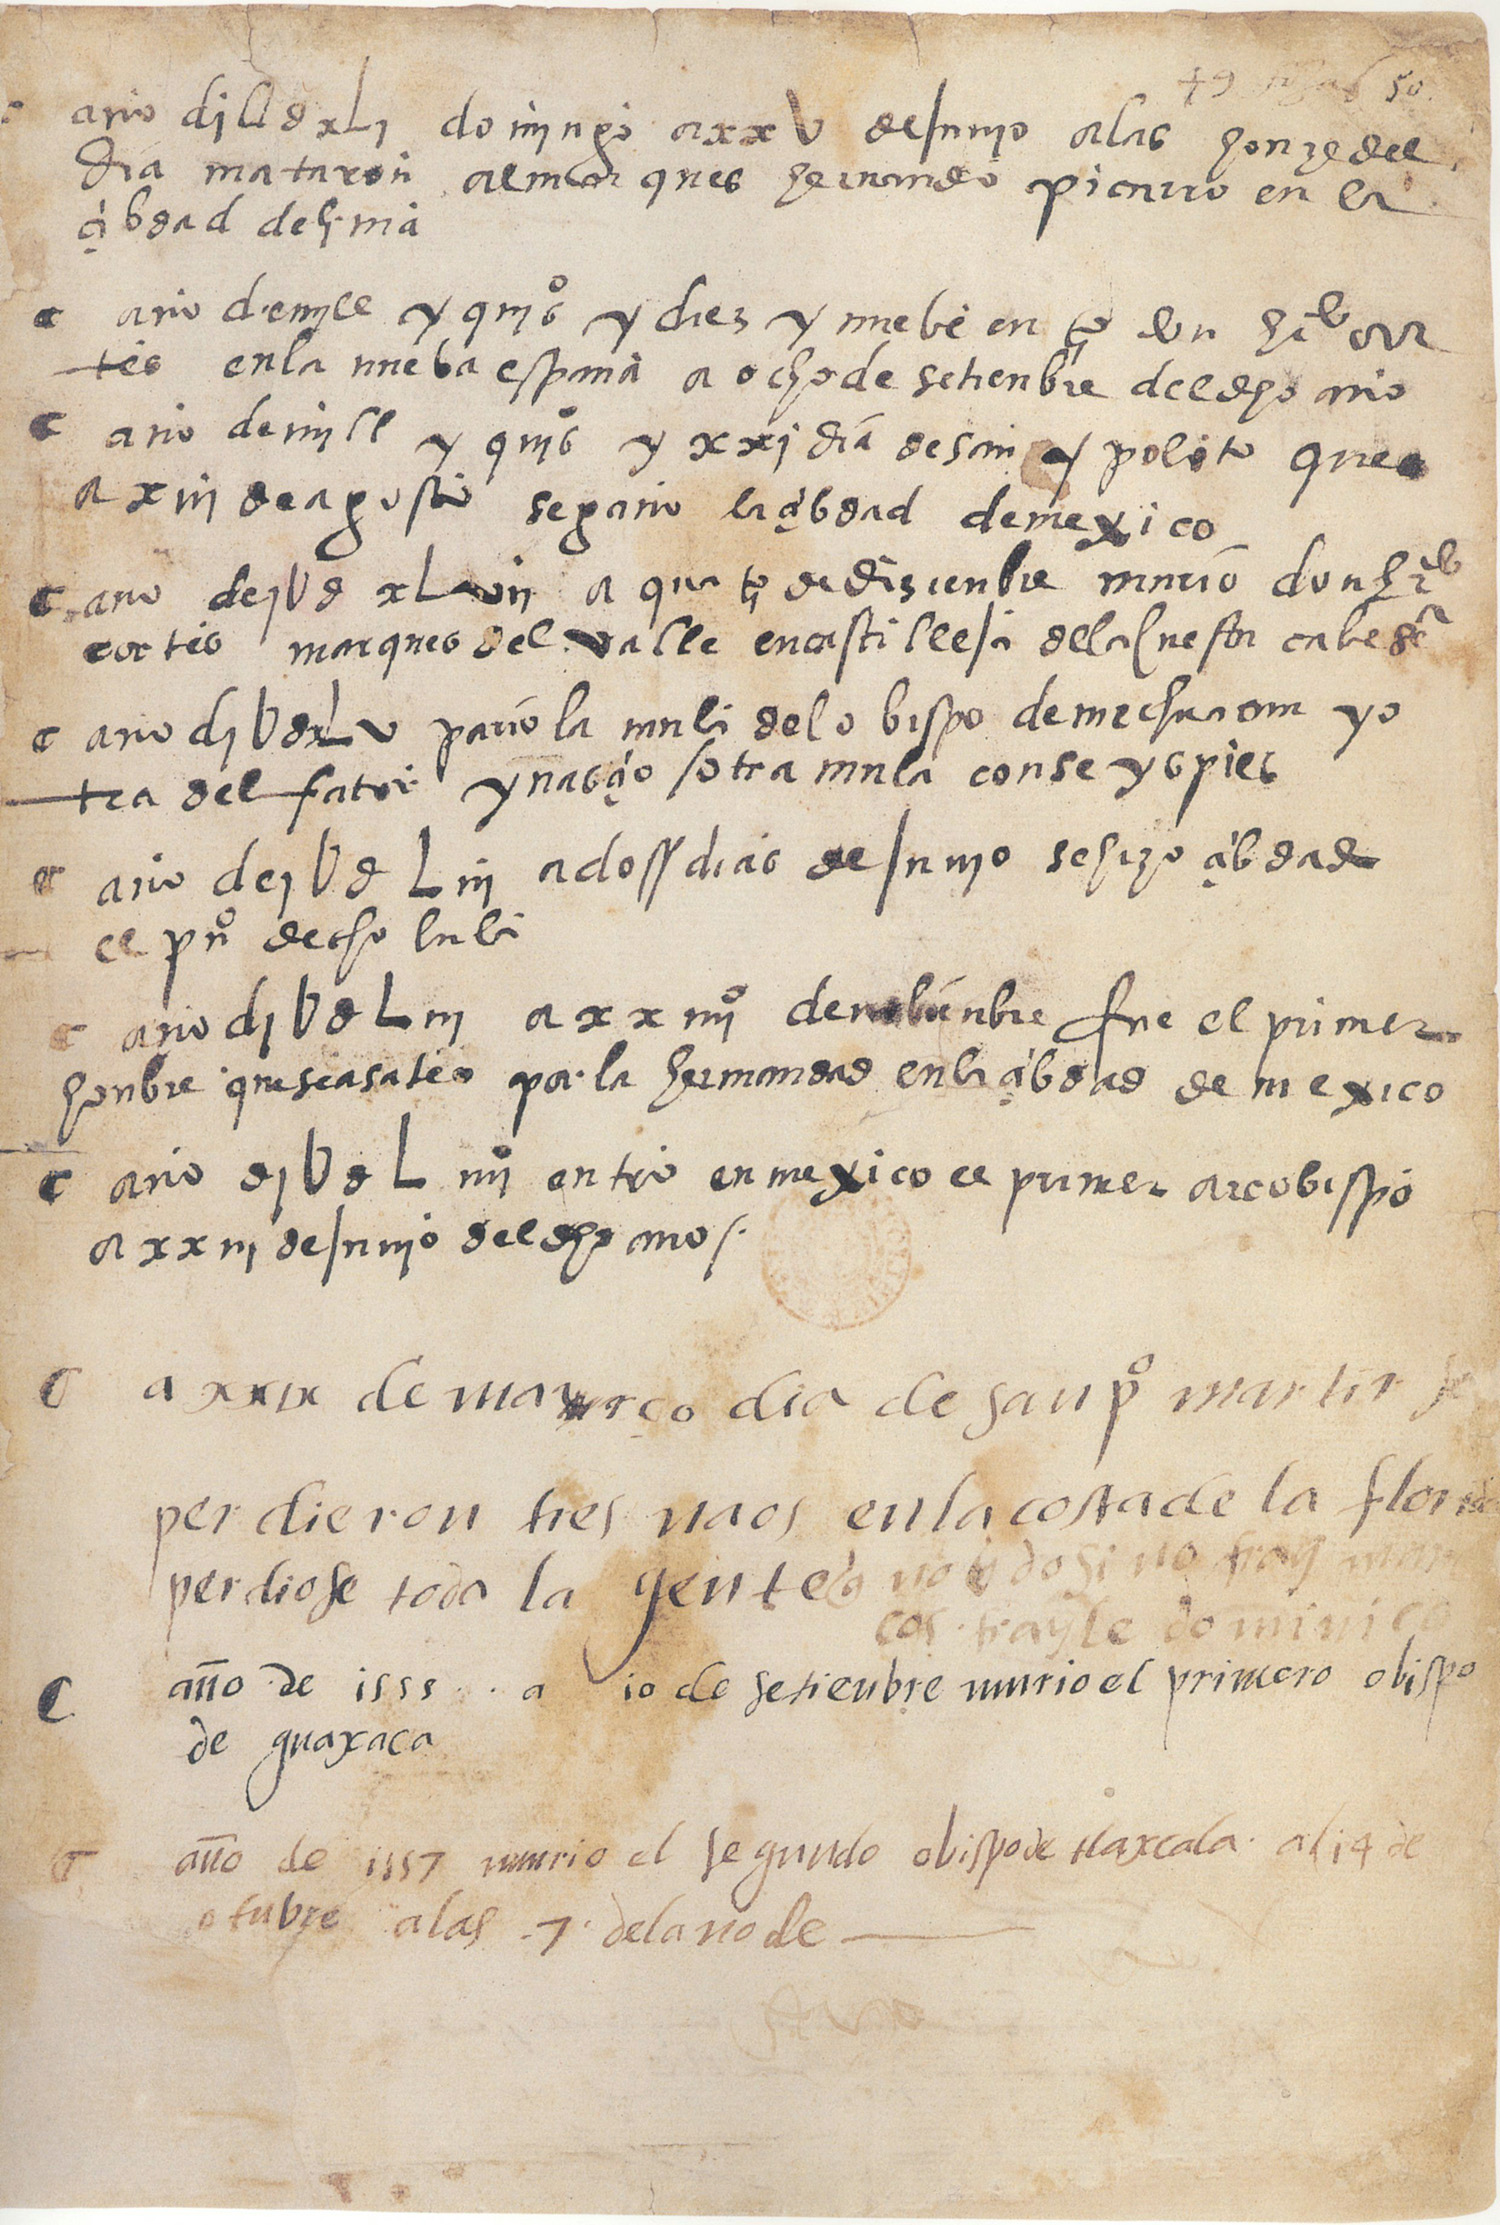 50
año djUd xLj domingo a xxv de junio a las honze del
dia mataron al marques hernando piçarro en la
çibdad de lima
año de mjll y qujºs y diez y nuebe entro don herdo cor
tes en la nueba españa a ocho de setienbre del dho año
año de mjll y qujºs y xxj dia de san ypolito que es
a xiij de agosto se gano la çibdad de mexico
año de jUd xLvij a quatro de disienbre murio don herdo
cortes marques del valle en castilleja de la cuesta
año djUd xLv pario la mula del obispo de mechuacan y o
tra del fator y nasçio otra mula con seys pies
año de jUd Liij a doss dias de junio se hizo çibdad
el puº de cholula
año djUd Liij a xxiiijº de nobienbre fue el primer
honbre que se asateo por la hermandad en la çibdad de mexico
año djUd Liiijº entro en mexico el primer arçobispo
a xxiij de junio del dho año
a xxix de março dia de san pº martir se
perdieron tres naos en la costa de la florida
perdiose toda la gente q no q do si no fray mar
cos frayle dominico
año de 1555 a 10 de setienbre murio el primero obispo
de guaxaca
año de 1557 murio el segundo obispo de tlaxcala a 14 de
otubre a las 7 de la noche